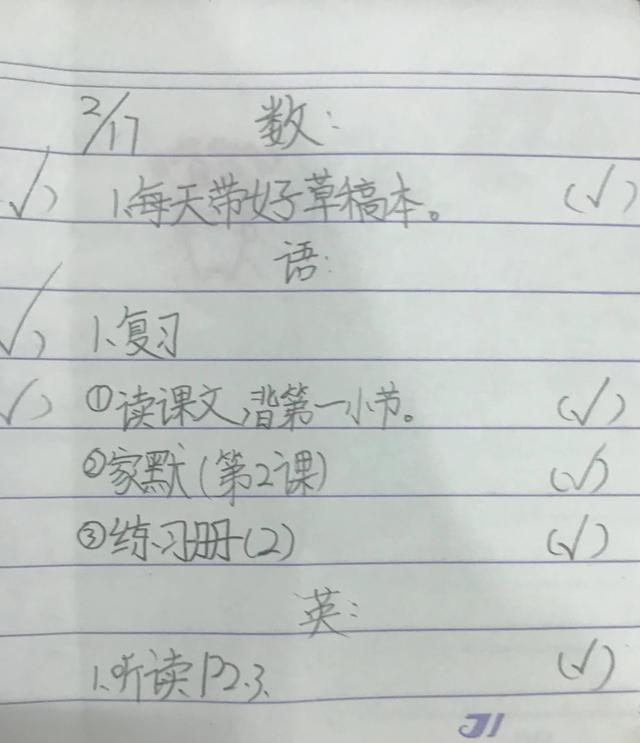 2/17 数:
√) 1.每天带好草稿本。 (√)
语:
√) 1.复习
√) ①读课文,背第一小节。 (√)
②家默(第2课) (√)
③练习册(2) (√)
英:
1.听读P2.3. (√)